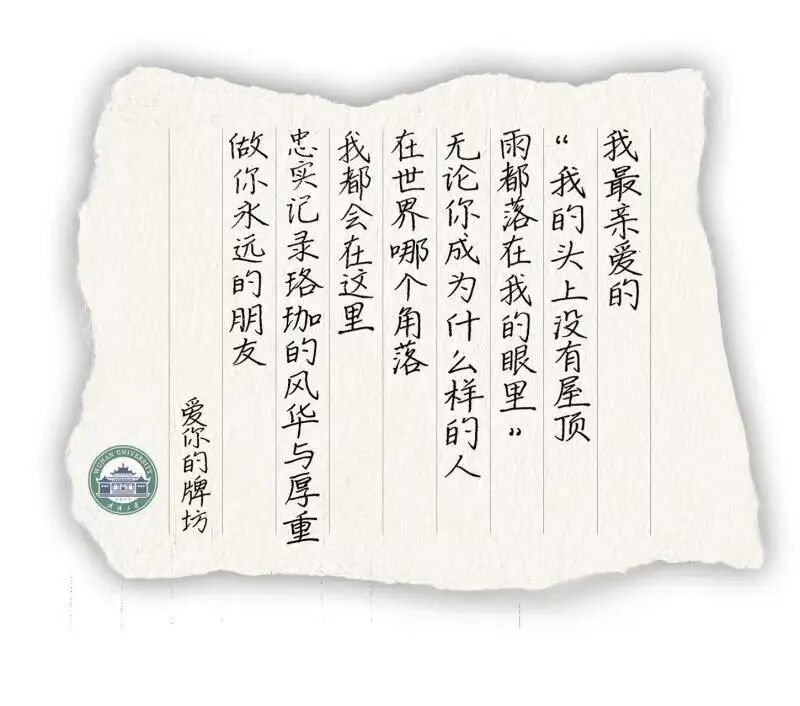 我最亲爱的
“我的头上没有屋顶
雨都落在我的眼里”
无论你成为什么样的人
在世界哪个角落
我都会在这里
忠实记录珞珈的风华与厚重
做你永远的朋友
爱你的牌坊
WUHAN UNIVERSITY
1893
武汉大学